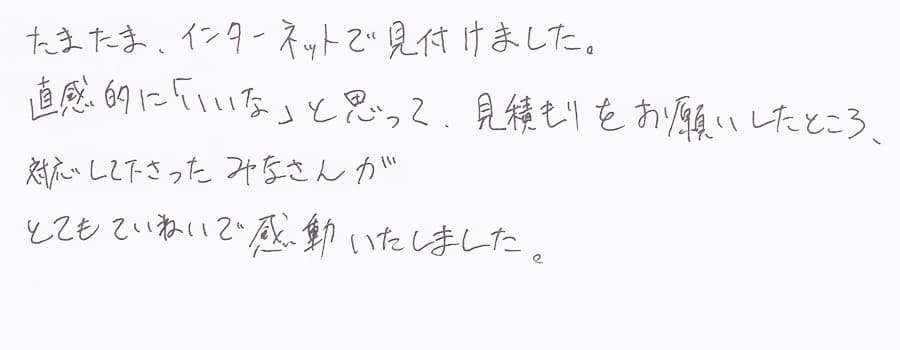 たまたま、インターネットで見付けました。
直感的に「いいな」と思って、見積もりをお願いしたところ、
対応して下さったみなさんが
とてもていねいで感動いたしました。